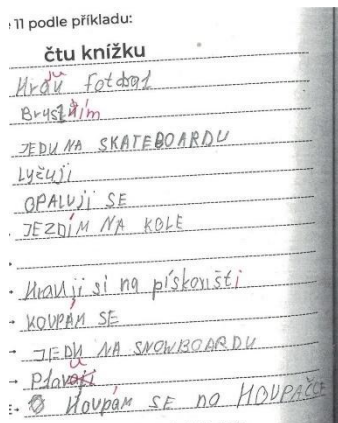 11 podle příkladu:
čtu knížku
Hraju fotbal
Bruslím
JEDU NA SKATEBOARDU
Lyžuji
OPALUJI SE
JEZDÍM NA KOLE
Hrauji si na pískovišti
KOUPÁM SE
JEDU NA SNOWBOARDU
Plavu
Houpám SE na HOUPAČCE